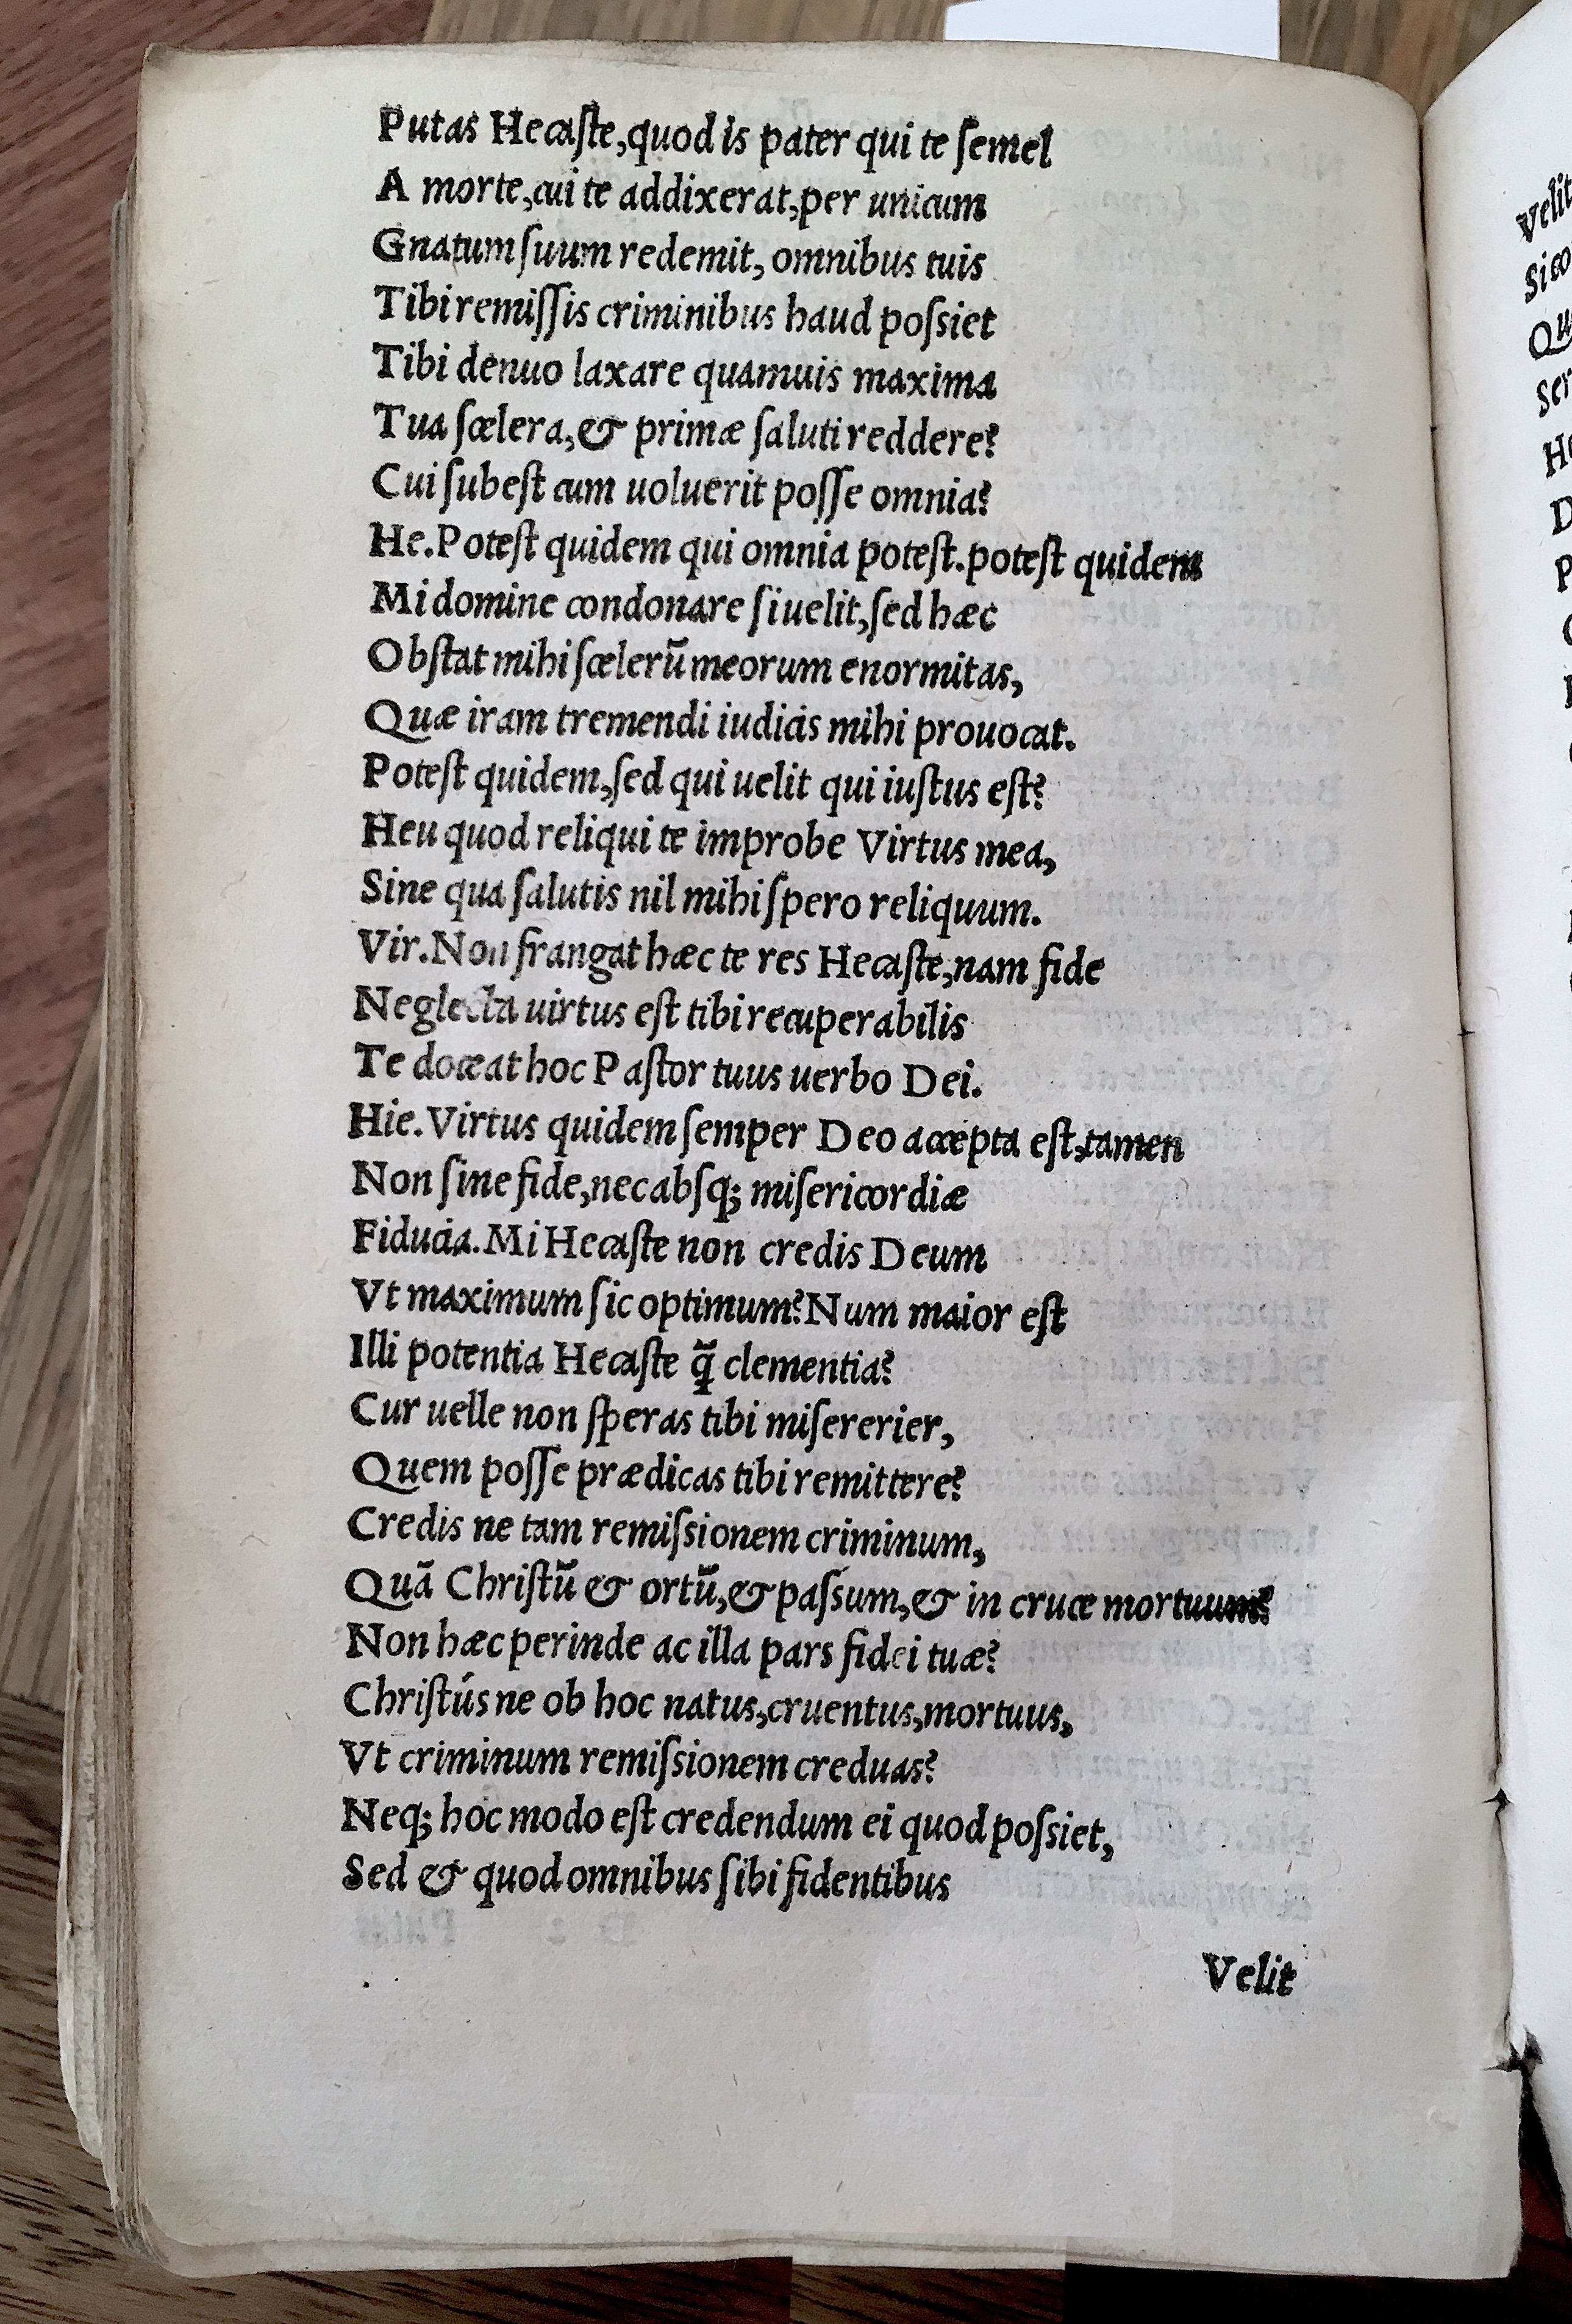 Putas Hecaſte,quod is pater qui te ſemel
A morte,cui te addixerat,per unicum
Gnatum ſuum redemit, omnibus tuis
Tibi remiſſis criminibus haud poſsiet
Tibi denuo laxare quamuis maxima
Tua ſcelera,& primæ ſaluti reddere?
Cui ſubeſt cum uoluerit poſſe omnia?
He.Poteſt quidem qui omnia poteſt.poteſt quidem
Mi domine condonare ſi uelit,ſed hæc
Obſtat mihi ſcelerū meorum enormitas,
Quæ iram tremendi iudicis mihi prouocat.
Poteſt quidem,ſed qui uelit qui iuſtus eſt?
Heu quod reliqui te improbe Virtus mea,
Sine qua ſalutis nil mihi ſpero reliquum.
Vir.Non frangat hæc te res Hecaſte,nam fide
Neglecta uirtus eſt tibi recuperabilis
Te doceat hoc Paſtor tuus uerbo Dei.
Hie.Virtus quidem ſemper Deo accepta eſt,tamen
Non ſine fide,nec abſq; miſericordiæ
Fiducia.Mi Hecaſte non credis Deum
Vt maximum ſic optimum?Num maior eſt
Illi potentia Hecaſte q̄̃ clementia?
Cur uelle non ſperas tibi miſererier,
Quem poſſe prædicas tibi remittere?
Credis ne tam remiſsionem criminum,
Quā Chriſtū & ortū,& paſsum,& in cruce mortuum?
Non hæc perinde ac illa pars fidei tuæ?
Chriſtúsne ob hoc natus,cruentus,mortuus,
Vt criminum remiſsionem creduas?
Neq; hoc modo eſt credendum ei quod poſsiet,
Sed & quod omnibus ſibi fidentibus
Velit
Velit
Qu